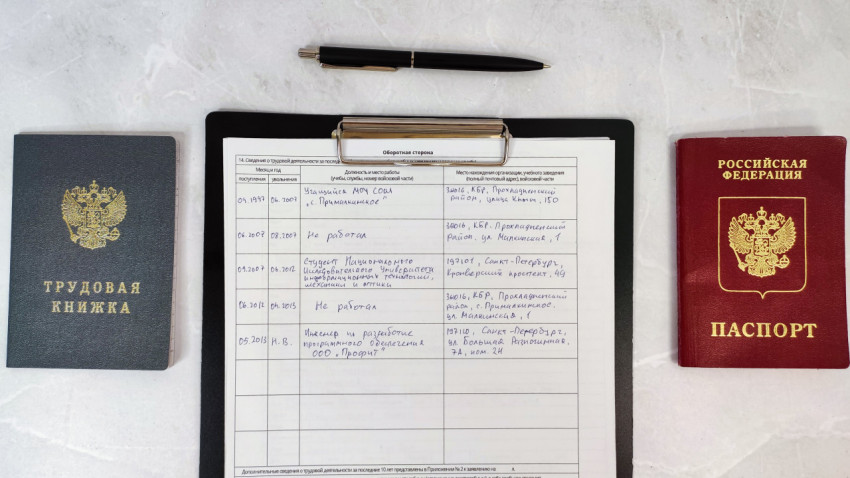 ТРУДОВАЯ
КНИЖКА
Оборотная сторона
14. Сведения о трудовой деятельности за послед
Месяц и год
поступления
увольнения
Должность и место работы
(учебы, службы, номер войсковой части)
Место нахождения организации, учебного заведения
(полный почтовый адрес), войсковой части
09.1997 06.2007 Учащийся МОУ СОШ
„с. Прималкинское"
36016, КБР, Прохладненский
район, улица 150
06.2007 08.2007 Не работал
36016, КБР, Прохладненский
район, ул. Малкинская, 1
09.2007 06.2012 Студент Национального
Исследовательского Университета
информационных технологий,
механики и оптики
197101, Санкт-Петербург,
Кронверкский проспект, 49
06.2012 04.2013 Не работал
36016, КБР, Прохладненский
район, с. Прималкинское,
ул. Малкинская, 1
05.2013 Н.В. Инженер по разработке
программного обеспечения
ООО „Профит"
197110, Санкт-Петербург,
ул Большая Разночинная,
7А, пом. 2Н
Дополнительные сведения о трудовой деятельности за последние 10 лет представлены в Приложении № 2 к заявлению на л.
РОССИЙСКАЯ
ФЕДЕРАЦИЯ
ПАСПОРТ